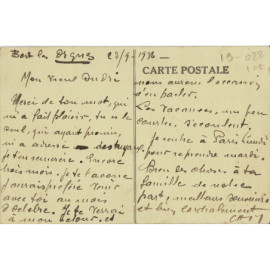 23/9/1936
Mon vieux André
Merci de ton mot, qui
m'a fait plaisir, tu es le
seul, qui ayant promis,
m'a adressé
je t'en remercie. Encore
trois mois. Je te l'avoue
avec toi au mois
d'octobre. Je te verrai
à mon retour, et
CARTE POSTALE
nous aurons l'occasion
d'en parler.
Les vacances, un peu
courtes, s'écoulent
je rentre à Paris lundi
pour reprendre mardi.
Bien des choses à ta
famille de notre
part, meilleurs souvenirs
et bien cordialement